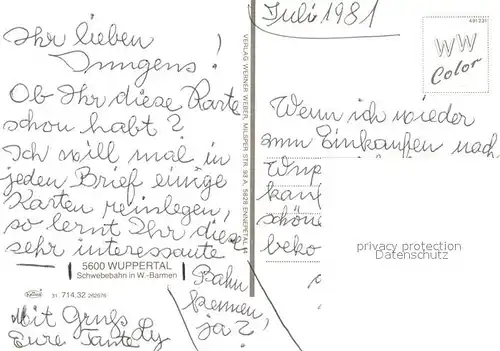 Ihr lieben
Jungens!
Ob Ihr diese Karte
schon habt?
Ich will mal in
jeden Brief einige
Karten reinlegen,
so lernt Ihr diese
sehr interessante
5600 WUPPERTAL
Schwebebahn in W.-Barmen
Bahn
kennen,
ja?
31 714.32 262676
Mit Gruß
Eure Tante Ly
VERLAG WERNER WEBER, MILSPER STR. 93 A, 5828 ENNEPETAL 14
Juli 1981
491231
WW
Color
Wenn ich wieder
zum Einkaufen nach
Wup
kauf
schöne
beko
privacy protection
Datenschutz